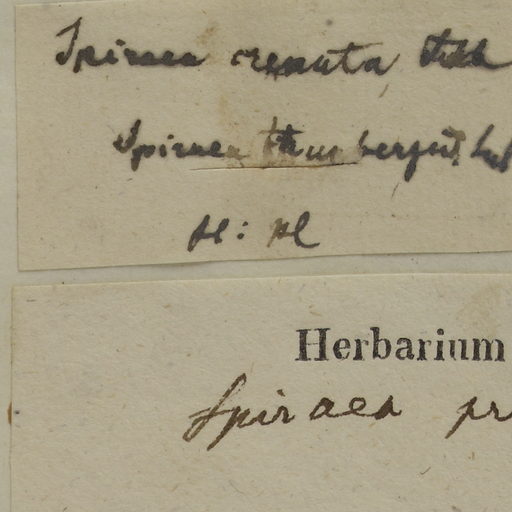 Spiraea crenata
Spiraea thunbergii
Herbarium
Spiraea pr